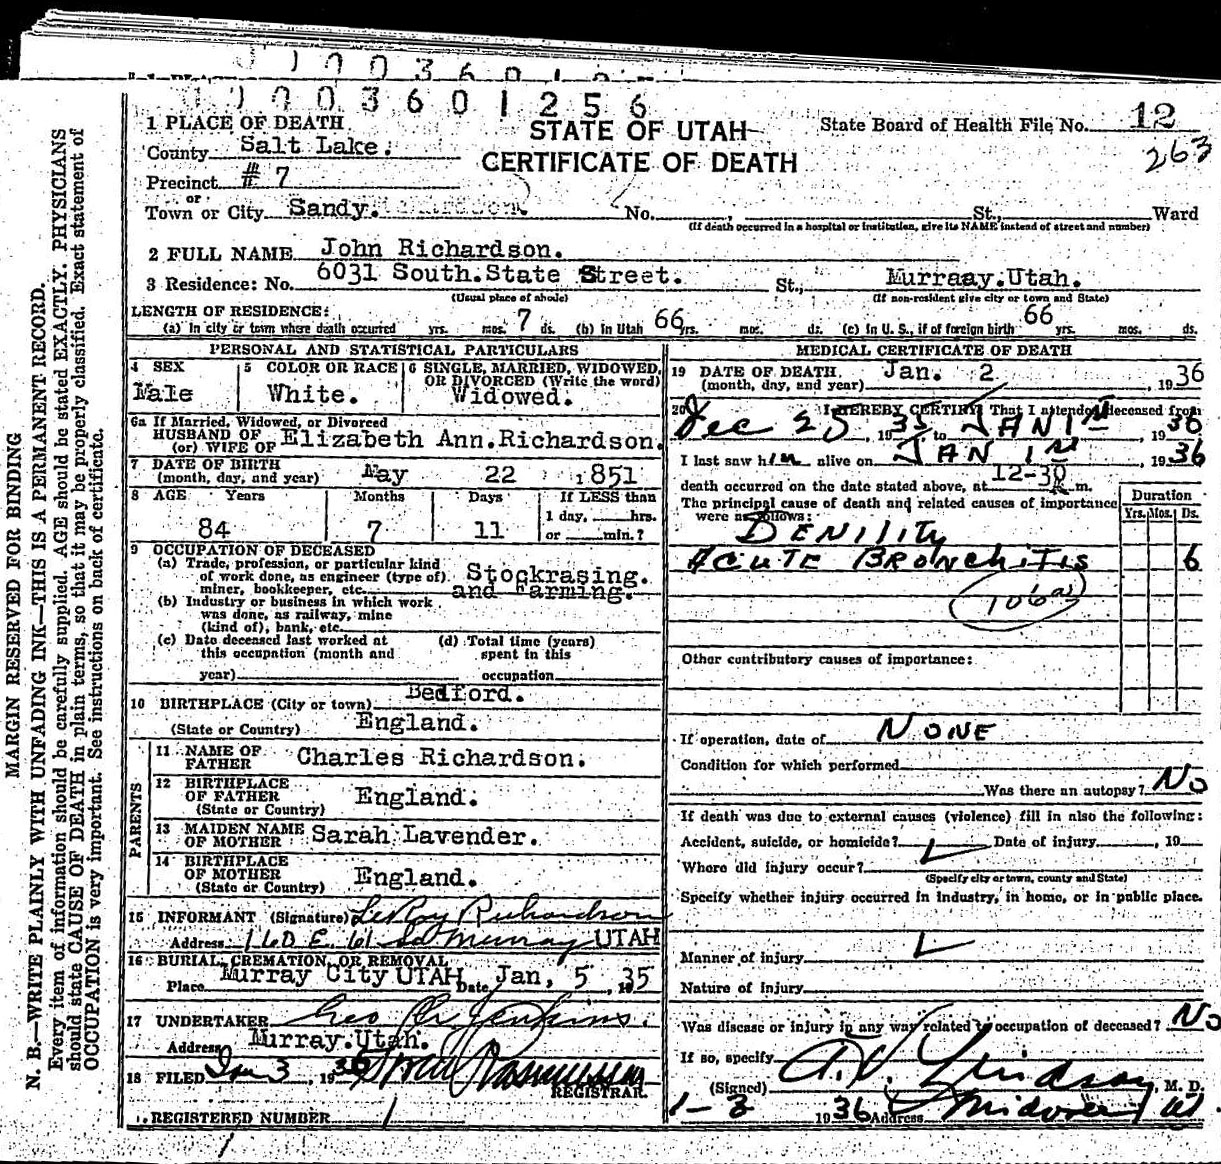 0003601256
1 PLACE OF DEATH
STATE OF UTAH
State Board of Health File No. 12
County Salt Lake.
CERTIFICATE OF DEATH
263
Precinct # 7
or
Town or City Sandy. No. , St., Ward
(If death occurred in a hospital or institution, give its NAME instead of street and number)
2 FULL NAME John Richardson.
3 Residence: No. 6031 South.State Street. St., Murraay.Utah.
(Usual place of abode) (If non-resident give city or town and State)
LENGTH OF RESIDENCE:
(a) in city or town where death occurred yrs. mos. 7 ds. (b) in Utah 66 yrs. mos. ds. (c) in U. S., if of foreign birth 66 yrs. mos. ds.
PERSONAL AND STATISTICAL PARTICULARS
4 SEX
Male
5 COLOR OR RACE
White.
6 SINGLE, MARRIED, WIDOWED,
OR DIVORCED (Write the word)
Widowed.
6a If Married, Widowed, or Divorced
HUSBAND OF
(or) WIFE OF Elizabeth Ann.Richardson.
7 DATE OF BIRTH
(month, day, and year) May 22 1851
8 AGE Years Months Days If LESS than
1 day, hrs.
84 7 11 or min.?
9 OCCUPATION OF DECEASED
(a) Trade, profession, or particular kind
of work done, as engineer (type of) Stockrasing.
miner, bookkeeper, etc. and Farming.
(b) Industry or business in which work
was done, as railway, mine
(kind of), bank, etc.
(c) Date deceased last worked at
this occupation (month and
year)
(d) Total time (years)
spent in this
occupation
10 BIRTHPLACE (City or town) Bedford.
(State or Country) England.
PARENTS
11 NAME OF
FATHER Charles Richardson.
12 BIRTHPLACE
OF FATHER England.
(State or Country)
13 MAIDEN NAME
OF MOTHER Sarah Lavender.
14 BIRTHPLACE
OF MOTHER England.
(State or Country)
15 INFORMANT (Signature) LeRoy Richardson
Address 160 E. 61 So Murray UTAH
16 BURIAL, CREMATION, OR REMOVAL
Place Murray City UTAH Date Jan, 5 1935
17 UNDERTAKER Geo Jenkins.
Address Murray.Utah.
18 FILED Jan 3, 1936 Rasmussen
REGISTRAR.
REGISTERED NUMBER 1
MEDICAL CERTIFICATE OF DEATH
19 DATE OF DEATH Jan. 2
(month, day, and year) , 1936
20 I HEREBY CERTIFY, That I attended deceased from
Dec 25, 1935 to JAN 1st, 1936
I last saw him alive on JAN 1st, 1936
death occurred on the date stated above, at 12-30 m.
The principal cause of death and related causes of importance
were as follows:
Duration
Yrs. Mos. Ds.
SENILITY
ACUTE BRONCHITIS 6
106a
Other contributory causes of importance:
If operation, date of NONE
Condition for which performed
Was there an autopsy? No
If death was due to external causes (violence) fill in also the following:
Accident, suicide, or homicide? Date of injury , 19
Where did injury occur?
(Specify city or town, county and State)
Specify whether injury occurred in industry, in home, or in public place.
Manner of injury
Nature of injury
Was disease or injury in any way related to occupation of deceased? No
If so, specify
(Signed) Lindsay M. D.
1-3 1936 Address Midvale Ut.
MARGIN RESERVED FOR BINDING
N. B.—WRITE PLAINLY WITH UNFADING INK—THIS IS A PERMANENT RECORD.
Every item of information should be carefully supplied. AGE should be stated EXACTLY. PHYSICIANS
should state CAUSE OF DEATH in plain terms, so that it may be properly classified. Exact statement of
OCCUPATION is very important. See instructions on back of certificate.